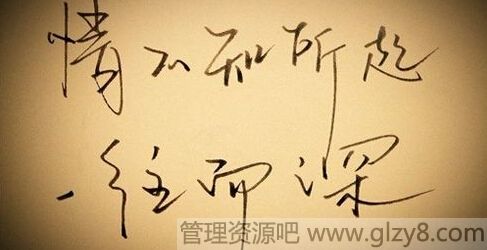 情不知所起
一往而深
管理资源吧 www.glzy8.com